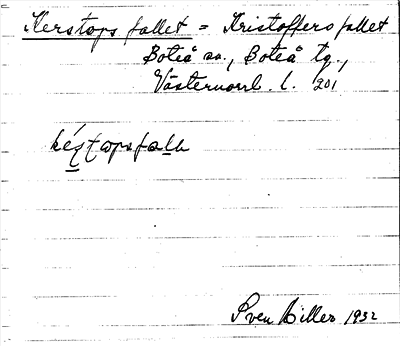 Kerstops fallet = Kristoffersfallet
Boteå sn., Boteå tg.,
Västernorrl. l. 201
Sven Hiller 1932